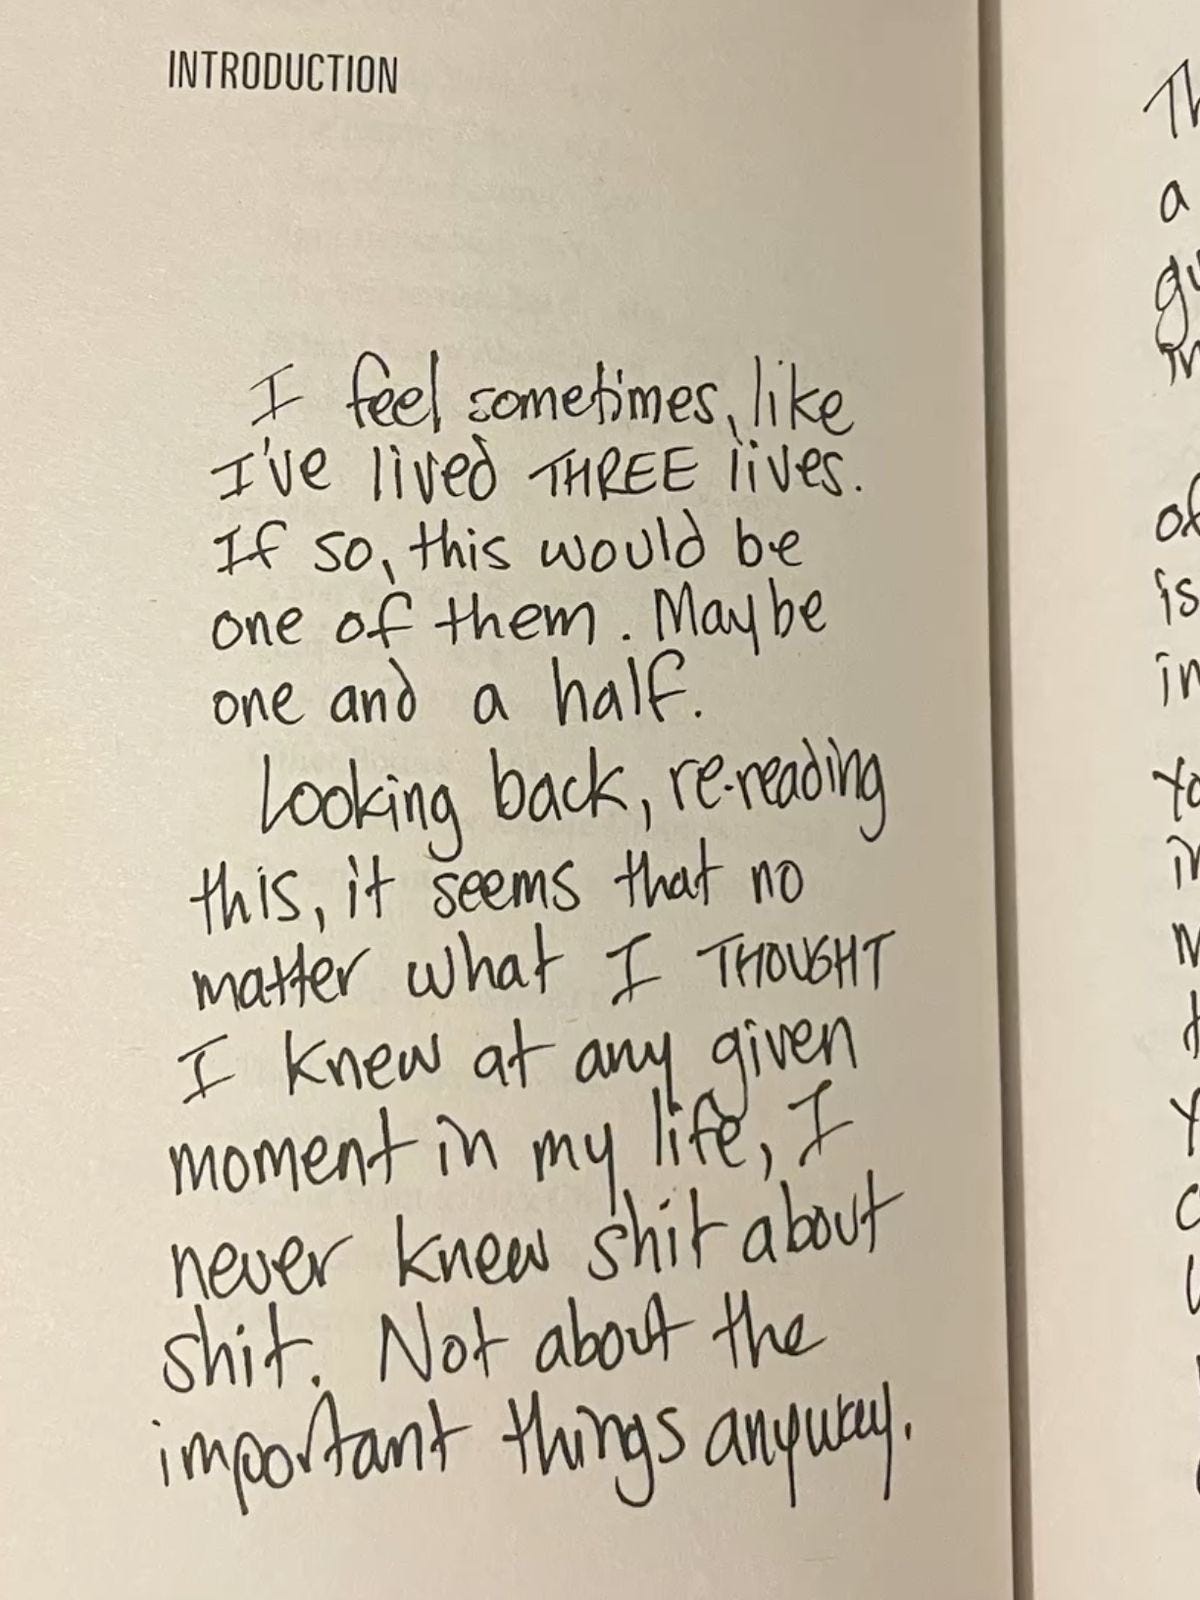 INTRODUCTION
I feel sometimes, like
I've lived THREE lives.
If so, this would be
one of them. Maybe
one and a half.
Looking back, re-reading
this, it seems that no
matter what I THOUGHT
I knew at any given
moment in my life, I
never knew shit about
shit. Not about the
important things anyway.
a
of
is